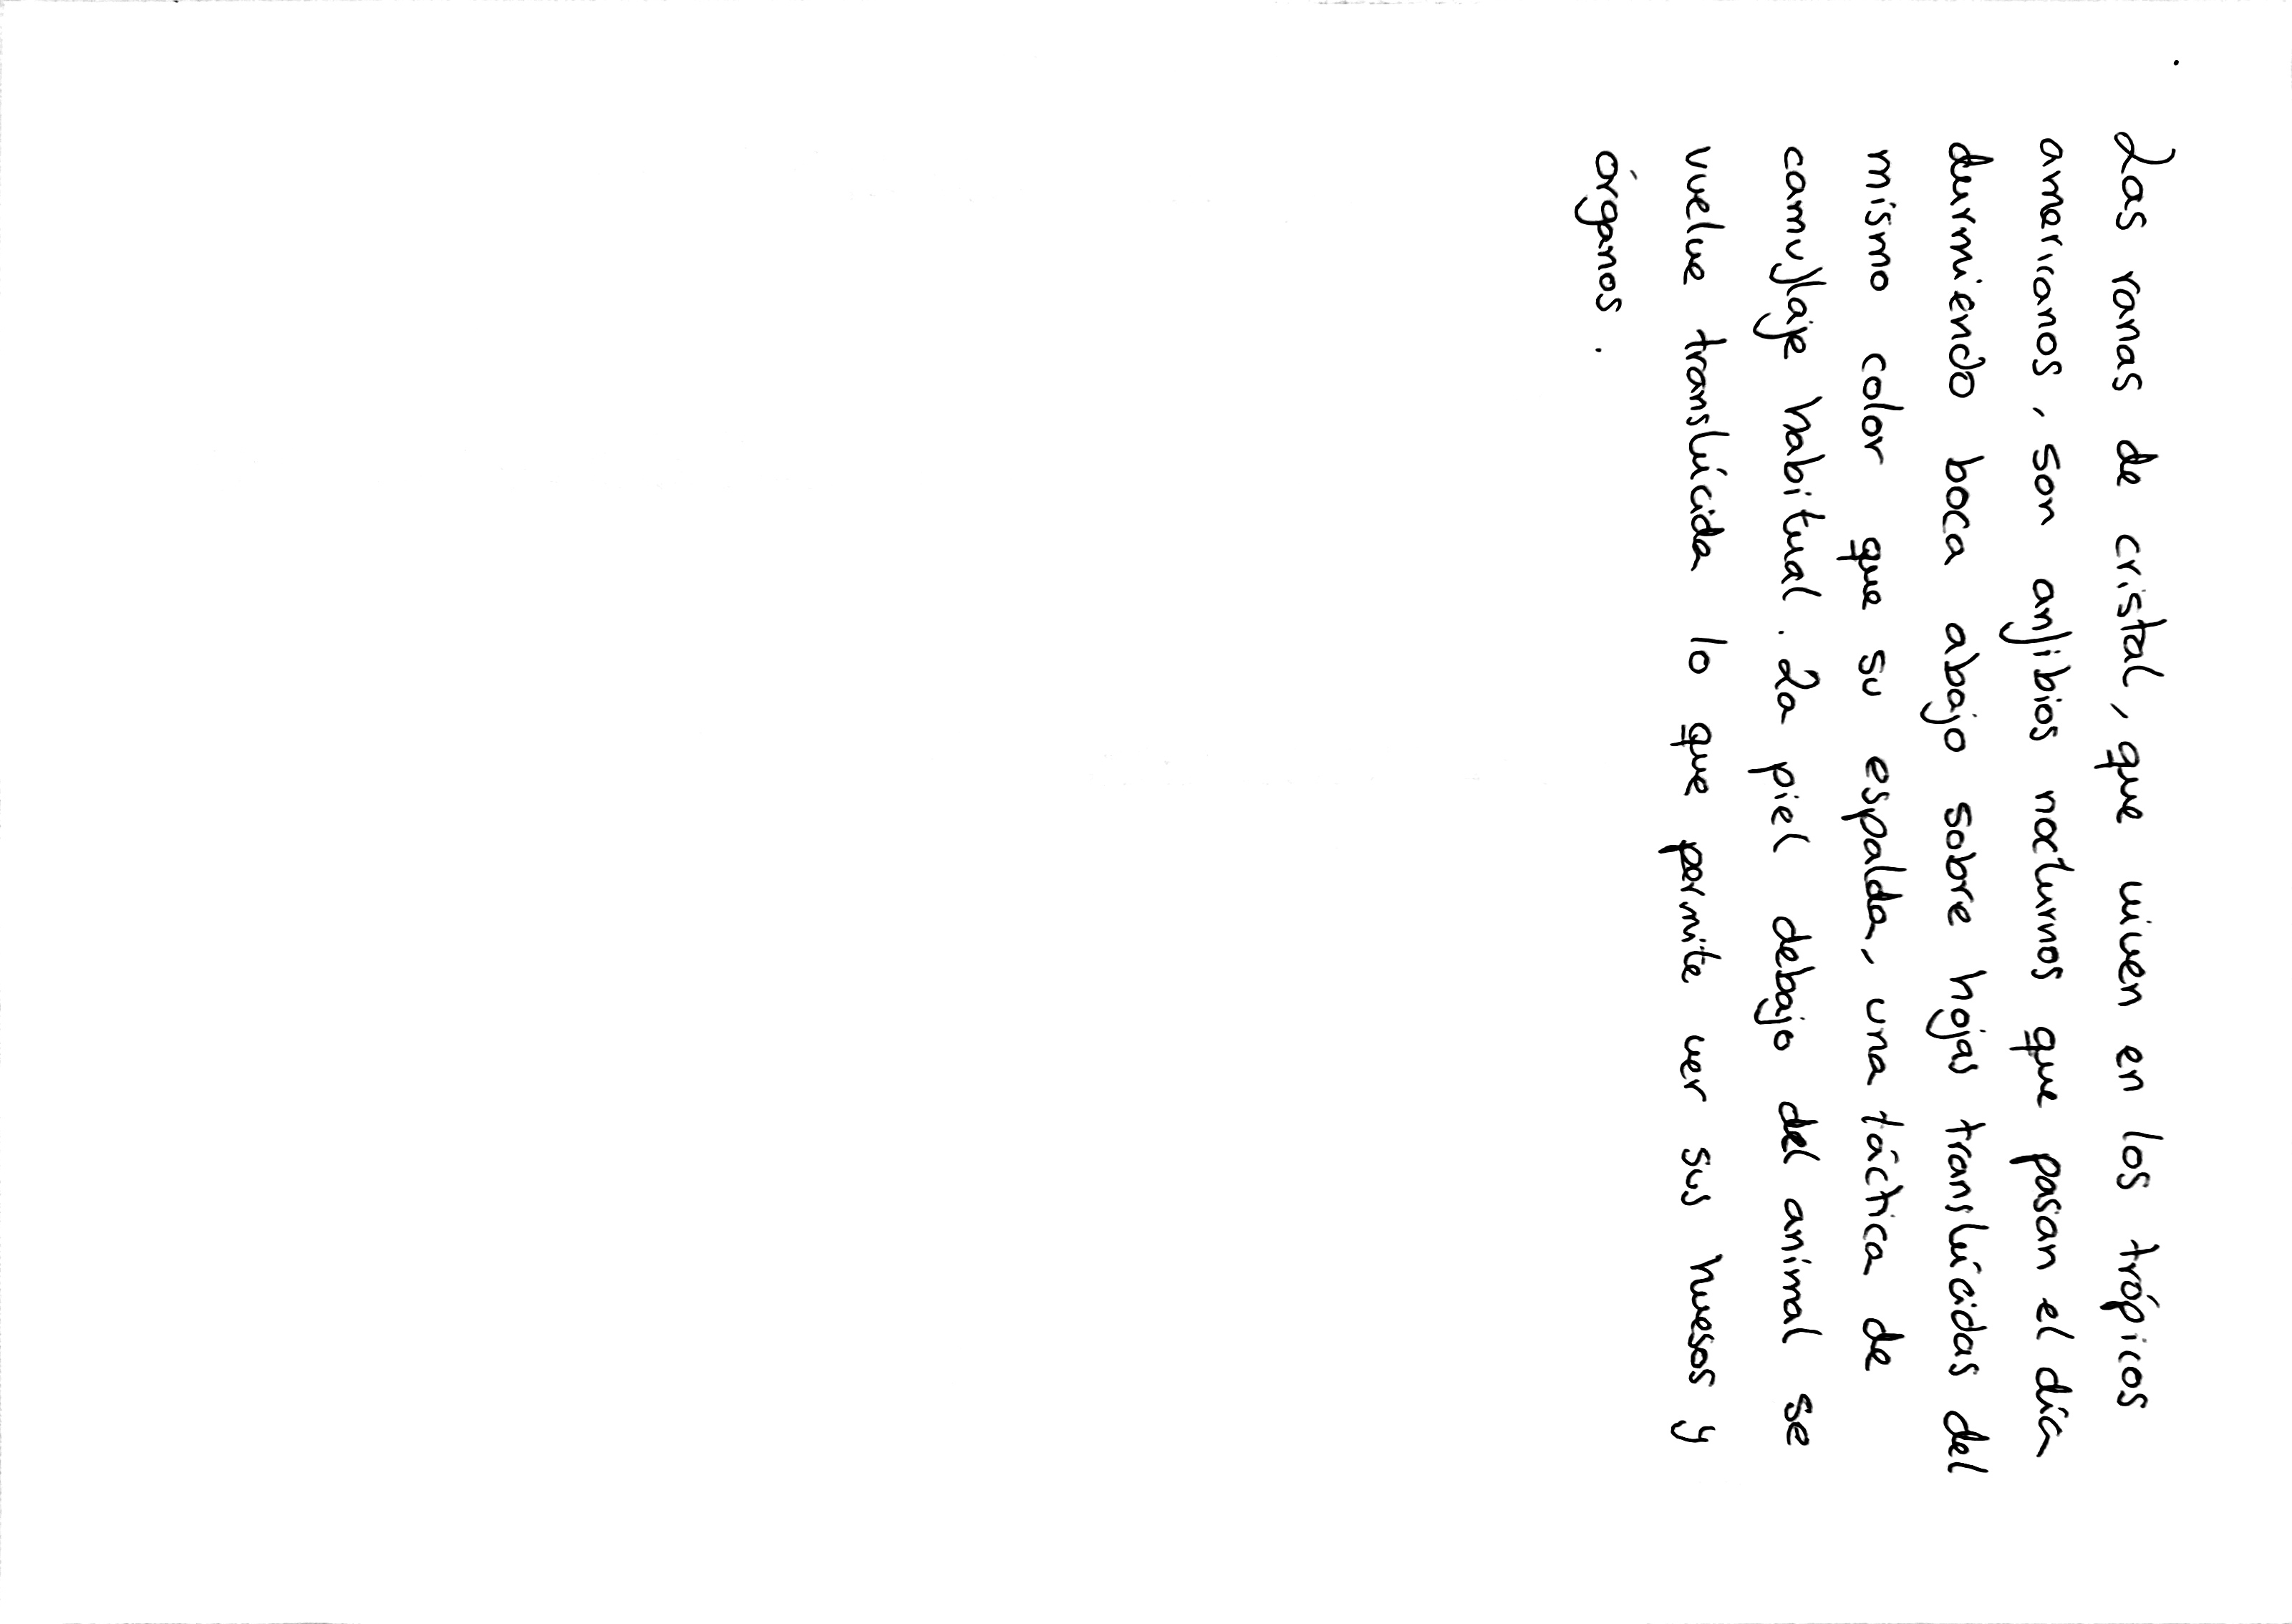 Las ranas de cristal, que viven en los trópicos
americanos, son anfibios nocturnos que pasan el día
durmiendo boca abajo sobre hojas translúcidas del
mismo color que su espalda, una táctica de
camuflaje habitual. La piel debajo del animal se
vuelve translúcida lo que permite ver sus huesos y
órganos.